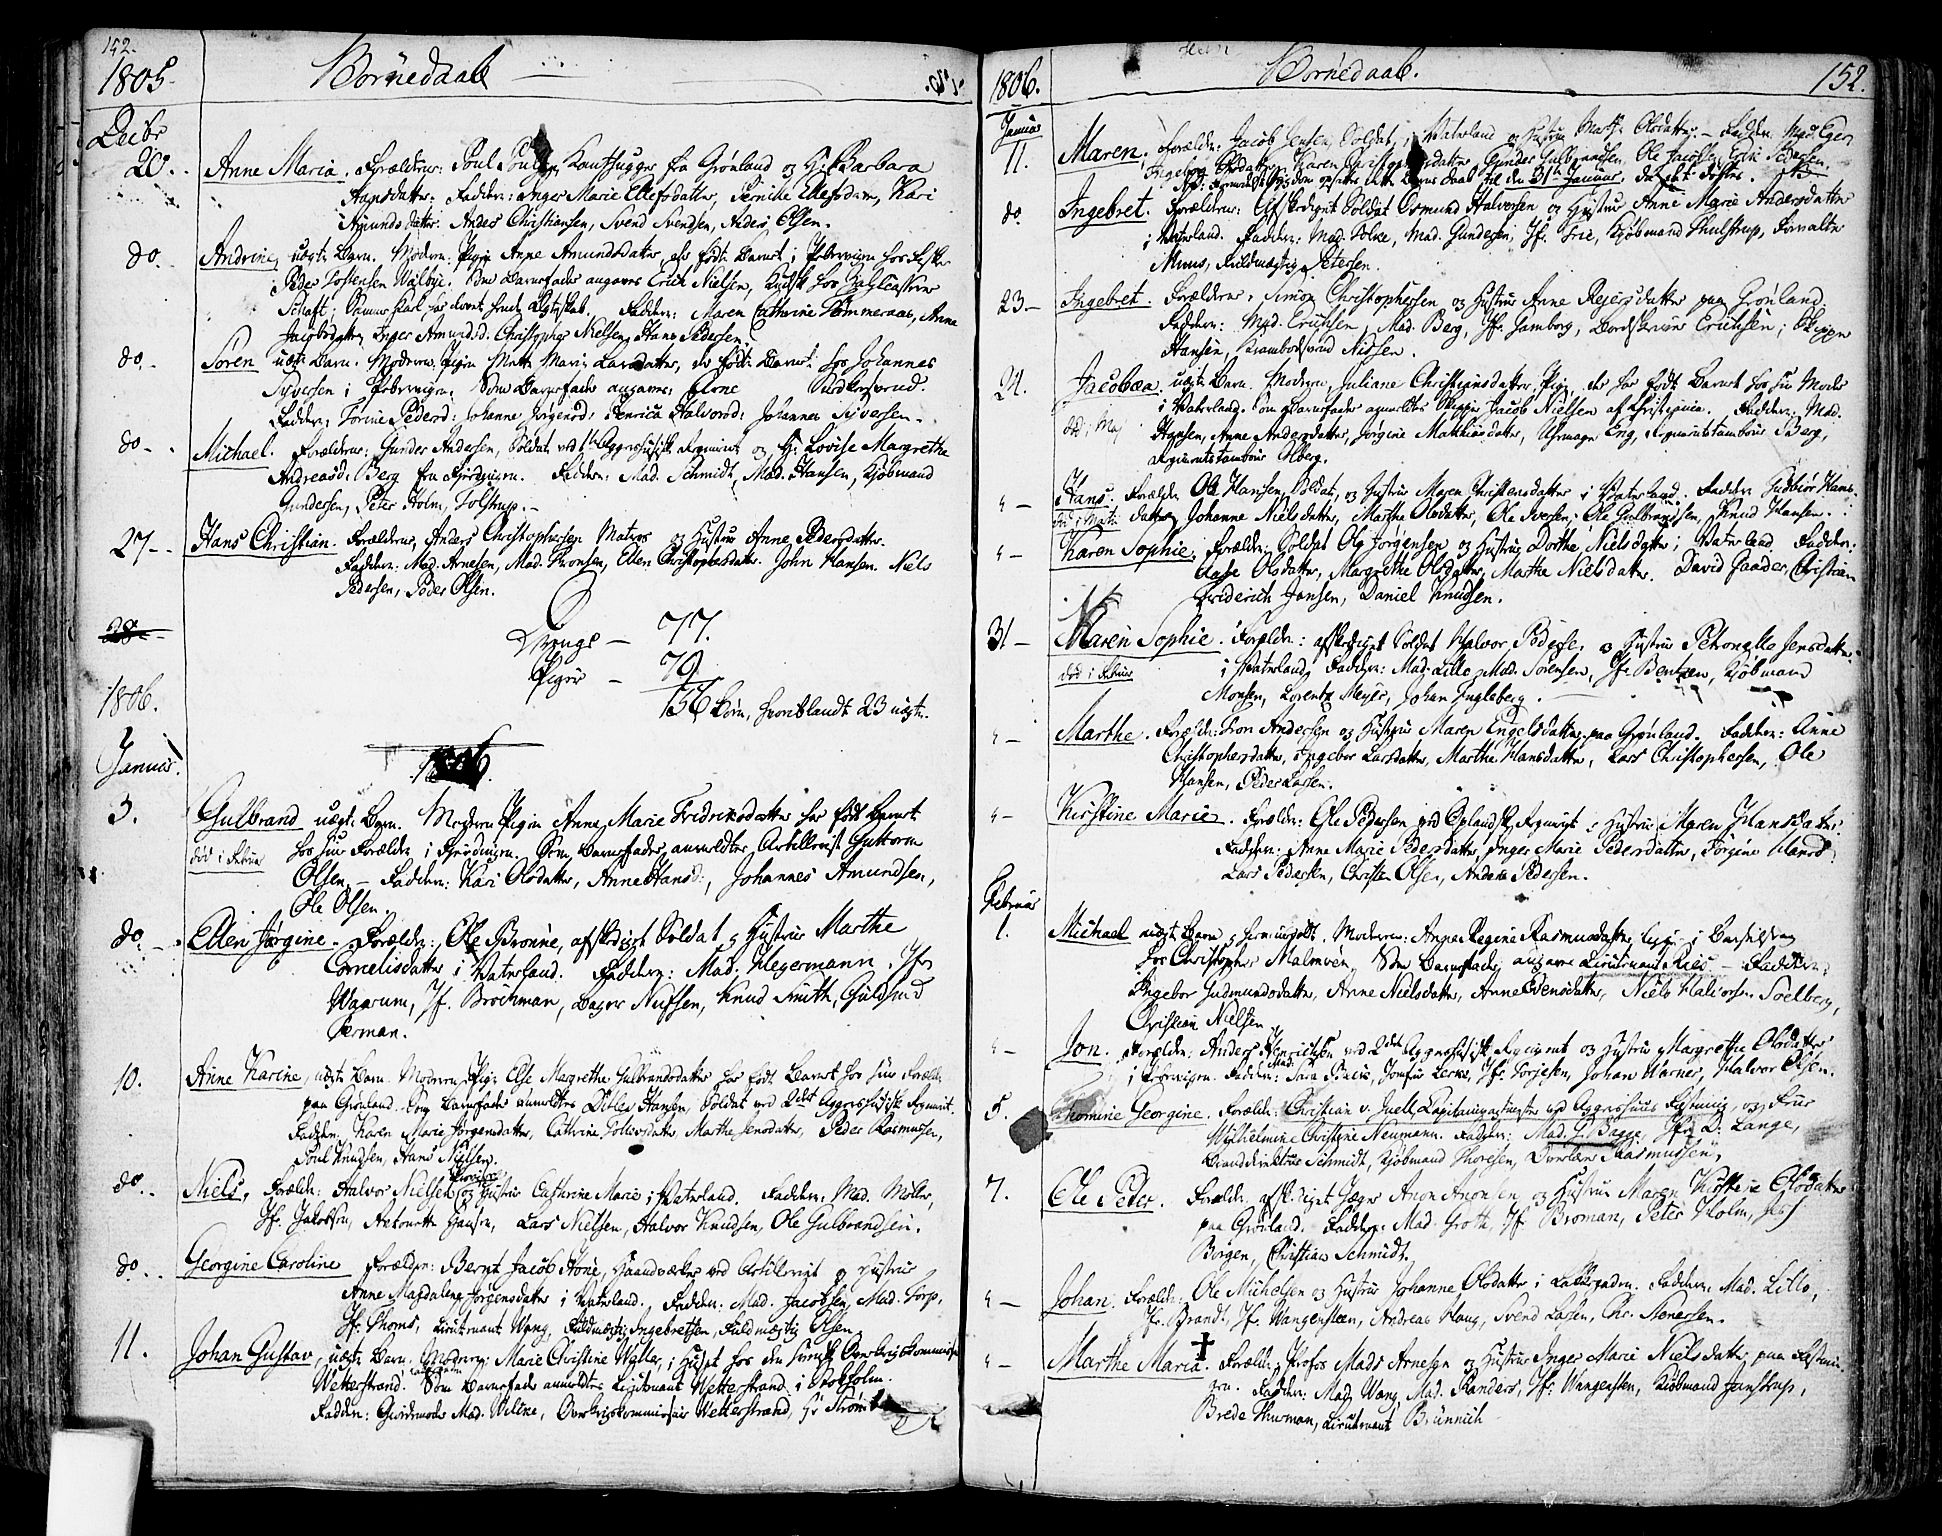 152.
1805.
Börnedaab
Decbr
20. Anne Maria. Forældrene: Poul Poulsen, fra Grønland og H: Barbara
Hansdatter. Faddere: Inger Marie Ellefsdatter, Pernille Ellefsdatter, Kari
Amundsdatter. Anders Christiansen, Svend Svendsen, Anders Olsen.
do. Andrine, uægte Barn. Moderen Pigen Anne Amundsdatter, som født Barnet i Pibervigen hos
Peder Torstensen. Som Barnefader angaves Erich Nielsen, Kudsk hos
Faddere: Maren Cathrine Sommeraas, Anne
Jacobsdatter, Inger Amundsd. Christopher Nielsen, Hans Pedersen.
do. Søren uægte Barn. Moderen Pigen Mette Marie Larsdatter, der fødte Barnet hos Johannes
Syversen i Pibervigen. Som Barnefader angaves Arne
Faddere: Torine Pedersd: Johanne Jørgensd: Henrica Halvorsd: Johannes Syversen.
do. Michael. Forældrene: Gunder Andersen, Soldat ved Aggershusiske Regiment og H: Lovise Margrethe
Andreasd: Berg fra Fjerdingen. Faddere: Mad. Schmidt, Mad. Hansen, Kjøbmand
Gundersen, Peter Holm, Tolstrup.
27. Hans Christian. Forældrene, Anders Christophersen Matros og Hustrue Anne Pedersdatter.
Faddere: Mad. Arnesen, Mad. Aronsen, Ellen Christophersdatter. John Hansen. Niels
Pedersen, Peder Olsen.
28
Drenge — 77.
Piger — 79
156 Børn, hvoriblandt 23 uægte.
1806.
Januar.
1806.
3. Gulbrand uægte Barn. Moderen Pigen Anne Marie Fridriksdatter har født Barnet
hos sine Forældre i Fjerdingen. Som Barnefader anmeldtes Artillerist Guttorm
død i Februar
Olsen. — Faddere: Kari Olsdatter, Anne Hansd:, Johannes Amundsen,
Ole Olsen.
do. Ellen Jørgine. Forældre: Ole Brønne, afskediget Soldat og Hustrue Marthe
Cornelisdatter i Vaterland. Faddere: Mad: Hegermann. Jfr.
Waarum, Jf. Brochman, Bager Nissen, Knud Smith, Guldsmed
Herman.
10. Anne Karine, uægte Barn. Moderen, Pige Else Margrethe Gulbrandsdatter har født Barnet hos sine Forældre
paa Grønland. Som Barnefader anmeldtes Ditlev Hansen, Soldat ved 2det Aggershusiske Regiment.
Faddere: Karen Marie Jørgensdatter, Cathrine Tollevsdatter, Marthe Jensdatter, Peder Rasmussen,
Poul Knudsen, Hans Nielsen.
do. Niels. Forældre: Halvor Nielsen og Hustrue Cathrine Marie i Vaterland. Faddere: Mad. Møller,
Jf. Jacobsen, Antonette Hansen, Lars Nielsen, Halvor Knudsen, Ole Gulbrandsen.
do. Georgine Caroline Forældre: Bernt Jacob Høne, Haandværker ved Artilleriet og Hustrue
Anne Magdalena Jørgensdatter i Vaterland. Faddere: Mad. Jacobsen, Mad. Torp,
Jf. Thoms, Lieutenant Wang, Fuldmægtig Ingebretsen, Fuldmægtig Olsen.
11. Johan Gustav, uægte Barn. Moderen: Marie Christine Wäller, i Huset hos den Svenske Overkrigskommissair
Wetterstrand. Som Barnefader anmeldtes Lieutenant Wetterstrand i Stokholm.
Faddere: Mad. Wilene, Overkrigskommissair Wetterstrand, Hr Strøm
1806.
Börnedaab.
152.
Januar
11. Maren. Forældre: Jacob Jensen, Soldat, i Vaterland og Hustrue Marthe Olsdatter. — Faddere: Mad Eger,
Ingeborg Olsdatter, Karen Christophersdatter, Gunder Gulbrandsen, Ole Jacobsen, Erik Pedersen.
den 31te Januar
do. Ingebret. Forældrene: Afskediget Soldat Osmund Halvorsen og Hustrue Anne Marie Andersdatter
i Vaterland. Faddere: Mad. Mad. Gundersen, Jf. Kjøbmand Thulstrup, Forvalter
Muus, Fuldmægtig Petersen.
23 — Ingebret. Forældrene, Simon Christophersen og Hustrue Anne Rejersdatter paa Grønland.
Faddere: Mad. Erichsen, Mad. Berg, Jf. Tamborg, Erichsen, Skipper
Hansen, Nissen.
24. Jacobæa uægte Barn. Moderen, Juliane Christiansdatter, Pige der har født Barnet hos sin Moder
i Vaterland. Som Barnefader anmeldtes Skipper Jacob Nielsen af Christiania. Faddere: Mad.
død i Maj
Hansen, Anne Andersdatter, Jørgine Matthiasdatter, Uhrmager Eng, Regimentstambour Berg,
Regimentstambour Olberg.
" — Hans. Forældre Ole Hansen, Soldat, og Hustrue Maren Christensdatter i Vaterland. Faddere Gudbiør Hans-
datter, Johanne Nielsdatter, Marthe Olsdatter, Ole Iversen, Ole Gulbrandsen, Knud Hansen.
" — Karen Sophie. Forældre: Soldat Ole Jørgensen og Hustrue Dorthe Nielsdatter i Vaterland Faddere:
Aase Olsdatter, Margrethe Olsdatter, Marthe Nielsdatter. David Faader, Christian
Friderich Jansen, Daniel Knudsen.
31 — Maren Sophie. Forældre: afskediget Soldat Halvor Peders. og Hustrue Petronelle Jensdatter
i Vaterland, Faddere: Mad: Lillo, Mad. Sørensen, Jfr Bentzen, Kjøbmand
død i Februar
Monsen, Lorentz Meyer, Johan Fugleberg.
" — Marthe. Forældre: Tron Andersen og Hustrue Maren Engelsdatter, paa Grønland. Faddere: Anne
Christophersdatter, Ingebor Larsdatter, Marthe Hansdatter, Lars Christophersen, Ole
Hansen, Peder Larsen.
" — Kirstine Marie. Forældre: Ole Pedersen ved Oplandske Regiment og Hustrue Maren Hansdatter.
Faddere: Anne Marie Pedersdatter, Inger Marie Pedersdatter, Jørgine Hansd.
Lars Pedersen, Christen Olsen, Anders Pedersen.
Februar
1. Michael uægte Barn Moderen: Anne Regine Rasmusdatter,
hos Christopher Malmven. Som Barnefader angaves Lieutenant Ries — Faddere:
Ingebor Gudmundsdatter, Anne Nielsdatter, Anne Svensdatter, Niels Halvorsen Soelberg,
Christian Nielsen
" — Jon. Forældre: Anders Henrichsen ved 2det Aggershusiske Regiment og Hustrue Margrethe Olsdatter
i Pibervigen. Faddere: Mad. Sara Jomfru Lerke, Jfr. Torjesen, Johan Warner, Halvor Olsen.
5. Thomine Georgine. Forældre: Christian v. Juell, Capitain ved Aggershuus Fæstning, og Frue
Wilhelmine Christine Neumann. Faddere: Mad. G. Bagge, Jfr D. Lange,
Branddirekteur Schmidt, Kjøbmand Thoresen, Rasmussen.
7. Ole Peder. Forældre: afskediget Jæger Anon Anonsen og Hustrue Maren Kirstine Olsdatter
paa Grønland. Faddere: Mad. Groth, Jf. Broman, Peter Holm,
Borgen, Christian Schmidt.
" — Johan. Forældre: Ole Michelsen og Hustrue Johanne Olsdatter i Lakkegaden. Faddere: Mad. Lillo,
Jfr. Brandt, Jf. Wangensteen, Andreas Haug, Svend Lassen, Chr. Tønnesen.
" — Marthe Maria. Forældre: Profos Mads Arnesen og Hustrue Inger Marie Nielsdatter paa Fæstnin-
gen. Faddere: Mad. Wang, Mad. Randers, Jf. Wangensten, Kjøbmand Janstrup,
Brede Thurman, Lieutenant Brünnich